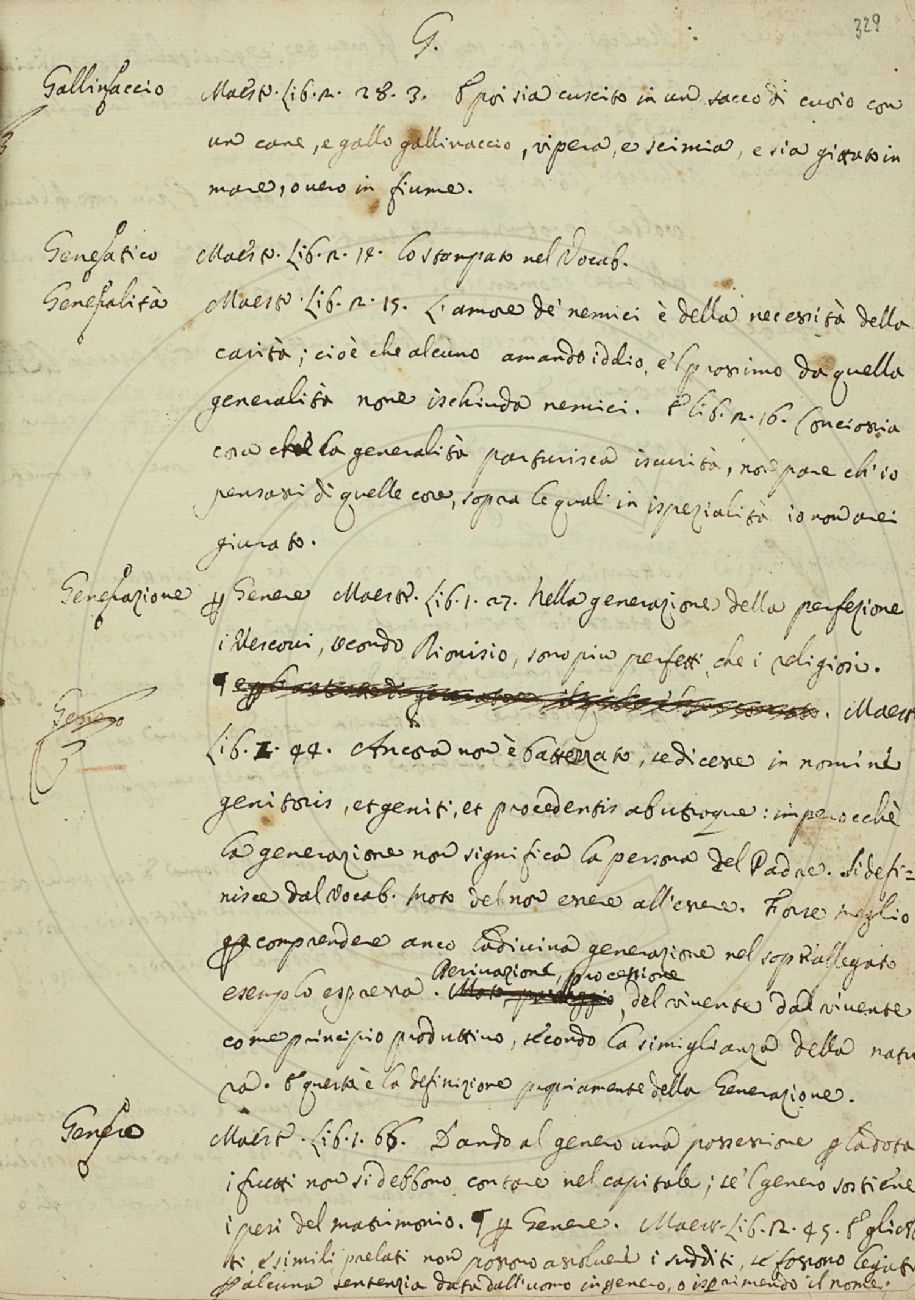 329
G.
Gallinaccio Maestr. Lib. 2. 28. 3. E poi sia cuscito in un sacco di cuoio con
un cane, e gallo gallinaccio, vipera, e scimia, e sia gittato in
mare, overo in fiume.
Generatico Maestr. Lib. 2. 14. Lo stampato nel Vocab.
Generalità Maestr. Lib. 2. 15. L'amore de' nemici è della necessità della
carità; cioè che alcuno amando iddio, e 'l prossimo da quella
generalità none ischiuda nemici. E Lib. 2. 16. Conciossia
cosa che la generalità parturisca iscurità, non pare ch'io
pensassi di quelle cose, sopra le quali in ispezialità io non arei
giurato.
Generazione Genere Maestr. Lib. 1. 27. Nella generazione della perfezione
i Vescovi, secondo Dionisio, sono piu perfetti, che i religiosi.
Maestr.
Genero
Lib. 1. 44. Ancora non è battezzato, se dicesse in nomine
genitoris, et geniti, et procedentis ab utroque: imperocchè
la generazione non significa la persona del Padre. Si defi=
nisce dal Vocab. Moto del non essere all'essere. Forse meglio
comprendere anco la divina generazione nel sopr'allegato
Derivazione, processione
esemplo espressa. del vivente dal vivente
come principio produttivo, secondo la simiglianza della natu
ra. E questa è la definizione propriamente della Generazione.
Genero Maestr. Lib. 1. 66. Dando al genero una possessione la dota
i frutti non si debbono contare nel capitale; se 'l genero sostiene
i pesi del matrimonio. ¶ Genere. Maestr. Lib. 2. 45. E gli
ti, e simili prelati non possono asolvere i sudditi, se fossono legati
alcuna sentenzia data dall'uomo in genero, o isprimendo il nome;